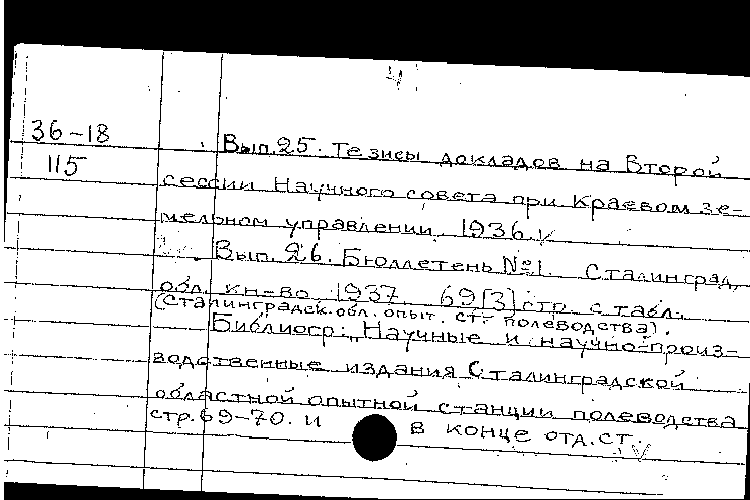 4
36-18
115
Вып. 25. Тезисы докладов на Второй
сессии Научного совета при Краевом зе-
мельном управлении. 1936. v
Вып. 26. Бюллетень №1. Сталинград,
обл. кн-во 1937. 69[3] стр. с табл.
(Сталинградск. обл. опыт. ст. полеводства).
Библиогр: „Научные и научно-произ-
водственные издания Сталинградской
областной опытной станции полеводства
стр. 69-70. и в конце отд. ст. v